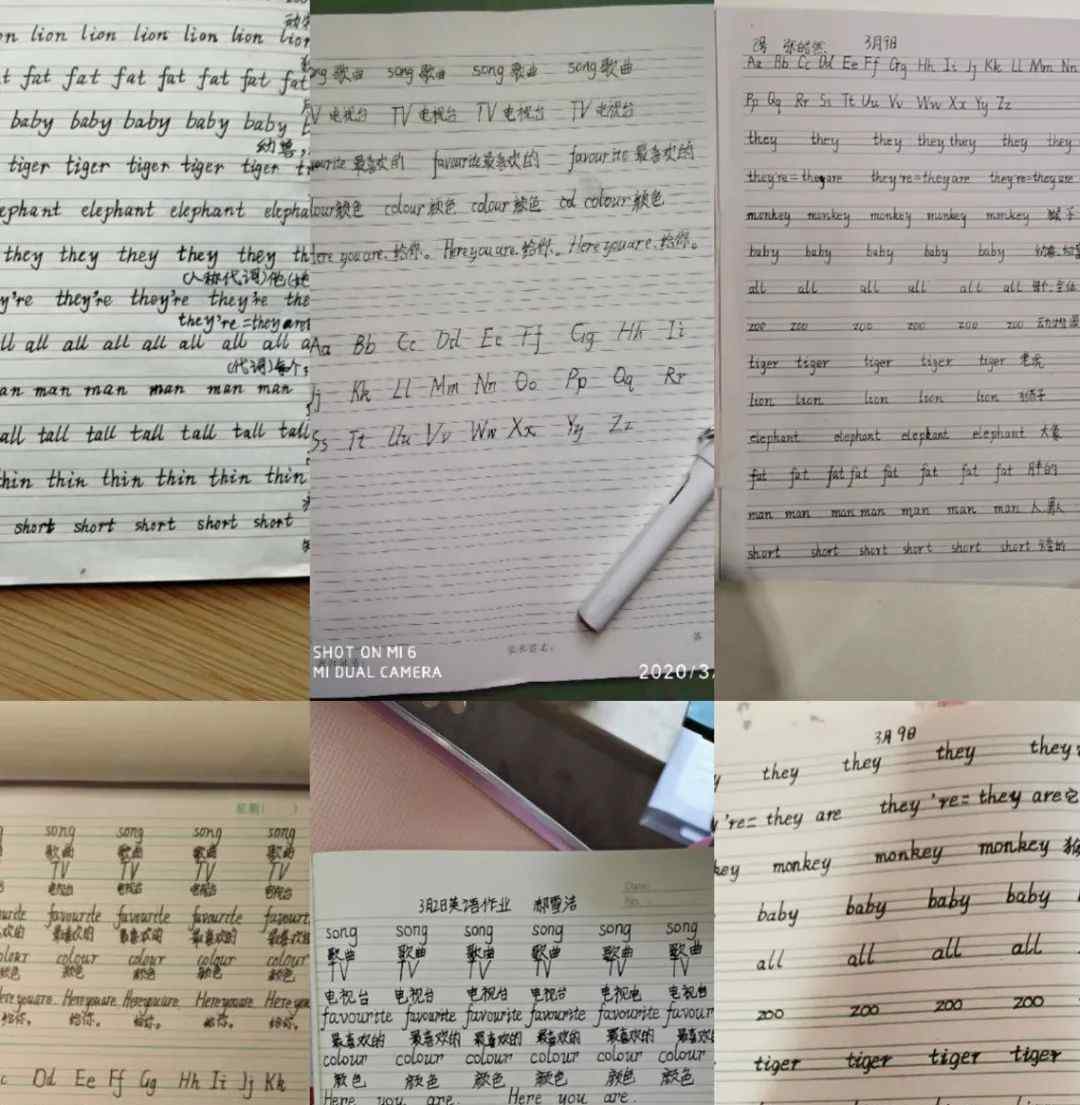 lion lion lion lion lion
fat fat fat fat fat fat fat
baby baby baby baby baby
幼兽,
tiger tiger tiger tiger tiger
elephant elephant elephant
they they they they they
(人称代词)他
they're they're they're
they're = they are
all all all all all all all
(代词)每个
man man man man man
tall tall tall tall tall tall
thin thin thin thin thin thin
short short short short short
歌曲 song 歌曲 song 歌曲 song 歌曲
电视台 TV 电视台 TV 电视台 TV 电视台
最喜欢的 favourite 最喜欢的 favourite 最喜欢的
颜色 colour 颜色 colour 颜色 col colour 颜色
Here you are. 给你。 Here you are. 给你。 Here you are. 给你。
Aa Bb Cc Dd Ee Ff Gg Hh Ii
Jj Kk Ll Mm Nn Oo Pp Qq Rr
Ss Tt Uu Vv Ww Xx Yy Zz
SHOT ON MI 6
MI DUAL CAMERA
2020/3/
3月9日
Aa Bb Cc Dd Ee Ff Gg Hh Ii Jj Kk Ll Mm Nn
Pp Qq Rr Ss Tt Uu Vv Ww Xx Yy Zz
they they they they they they they
they're = they are they're = they are they're = they are
monkey monkey monkey monkey monkey 猴子
baby baby baby baby baby
all all all all all all
zoo zoo zoo zoo zoo zoo 动物园
tiger tiger tiger tiger tiger 老虎
lion lion lion lion lion 狮子
elephant elephant elephant elephant 大象
fat fat fat fat fat fat fat fat 胖的
man man man man man man man 人,男人
short short short short short short
星期( )
song song song song
歌曲 歌曲 歌曲 歌曲
TV TV TV TV
电视台 电视台 电视台 电视台
favourite favourite favourite
最喜欢的 最喜欢的 最喜欢的 最喜欢的
colour colour colour colour
颜色 颜色 颜色 颜色 颜色
Here you are. Here you are. Here you are. Here you are.
给你。 给你。 给你。 给你。 给你。
Dd Ee Ff Gg Hh Ii Jj Kk
Date
No.
3月2日英语作业 郝雪洁
song song song song song song
歌曲 歌曲 歌曲 歌曲 歌曲 歌曲
TV TV TV TV TV TV
电视台 电视台 电视台 电视台 电视电 电视台
favourite favourite favourite favourite favourite
最喜欢的 最喜欢的 最喜欢的 最喜欢的 最喜欢的 最喜欢的
colour colour colour colour colour colour
颜色 颜色 颜色 颜色 颜色 颜色
Here you are. Here you are.
3月9日
they they they they
're = they are they're = they are 它
monkey monkey monkey 猴
baby baby baby baby
all all all all
zoo zoo zoo
tiger tiger tiger tiger